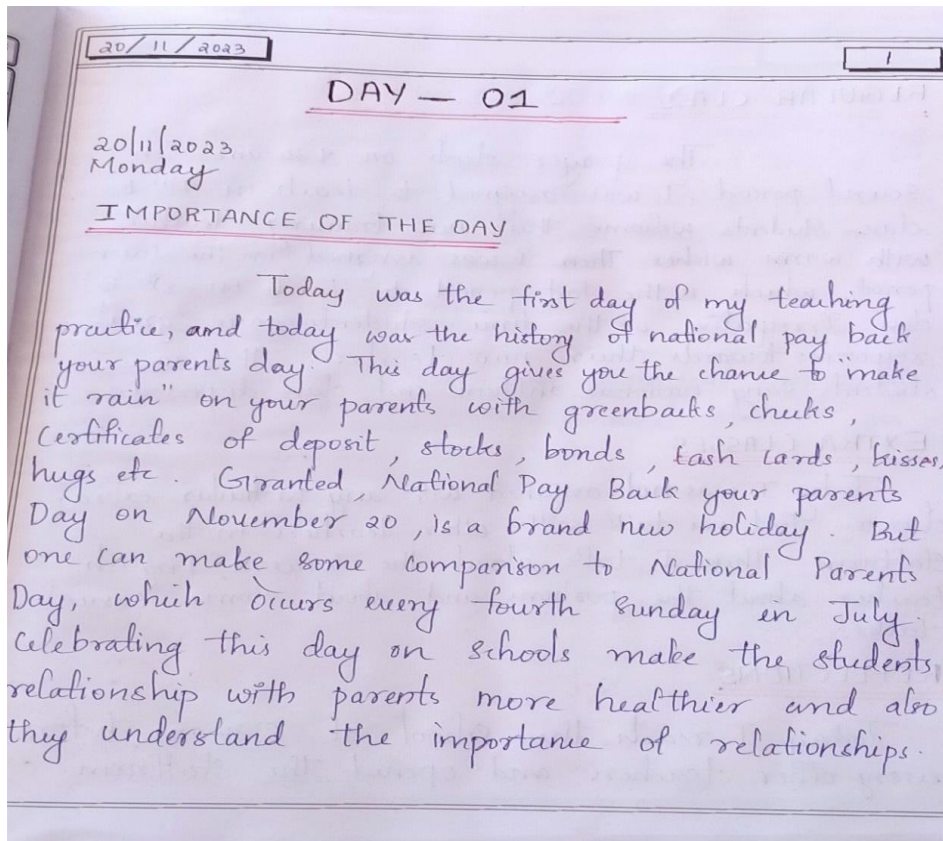 20/11/2023
1
DAY - 01
20/11/2023
Monday
IMPORTANCE OF THE DAY
Today was the first day of my teaching
practice, and today was the history of national pay back
your parents day. This day gives you the chance to make
it rain" on your parents with greenbacks, checks,
Certificates of deposit, stocks, bonds, cash cards, kisses,
hugs etc. Granted, National Pay Back your parents
Day on November 20, is a brand new holiday. But
one can make some comparison to National Parents
Day, which occurs every fourth Sunday in July.
Celebrating this day on schools make the students
relationship with parents more healthier and also
they understand the importance of relationships.